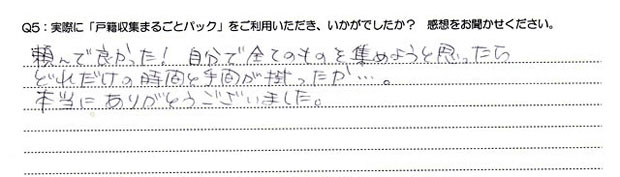 Q5：実際に「戸籍収集まるごとパック」をご利用いただき、いかがでしたか？ 感想をお聞かせください。
頼んで良かった！ 自分で全てのものを集めようと思ったら
どれだけの時間と手間が掛ったか…。
本当にありがとうございました。